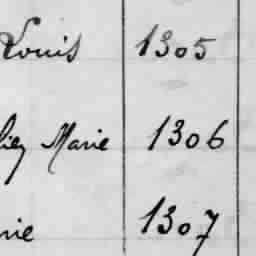 Louis 1305
Marie 1306
1307